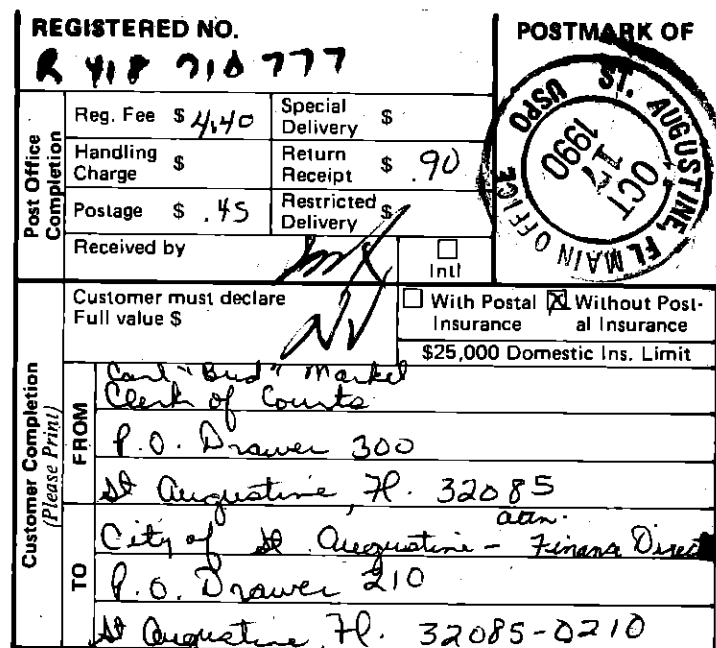 REGISTERED NO.
R 418 710 777
POSTMARK OF
ST. AUGUSTINE, FL MAIN OFFICE
USPO
OCT
17
1990
Post Office Completion
Reg. Fee $ 4.40
Special Delivery $
Handling Charge $
Return Receipt $ .90
Postage $ .45
Restricted Delivery $
Received by
Int'l
Customer must declare
Full value $ NV
With Postal Insurance
☒ Without Post-
al Insurance
$25,000 Domestic Ins. Limit
Customer Completion
(Please Print)
FROM
Carl "Bud" Markel
Clerk of Courts
P.O. Drawer 300
St Augustine, Fl. 32085
TO
attn.
City of St Augustine - Finance Direct
P.O. Drawer 210
St Augustine, Fl. 32085-0210